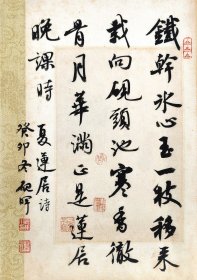 鐵幹冰心玉一枝移來
栽向硯頭池寒香徹
骨月華滿正是蓮居
晚課時
夏蓮居詩
癸卯冬